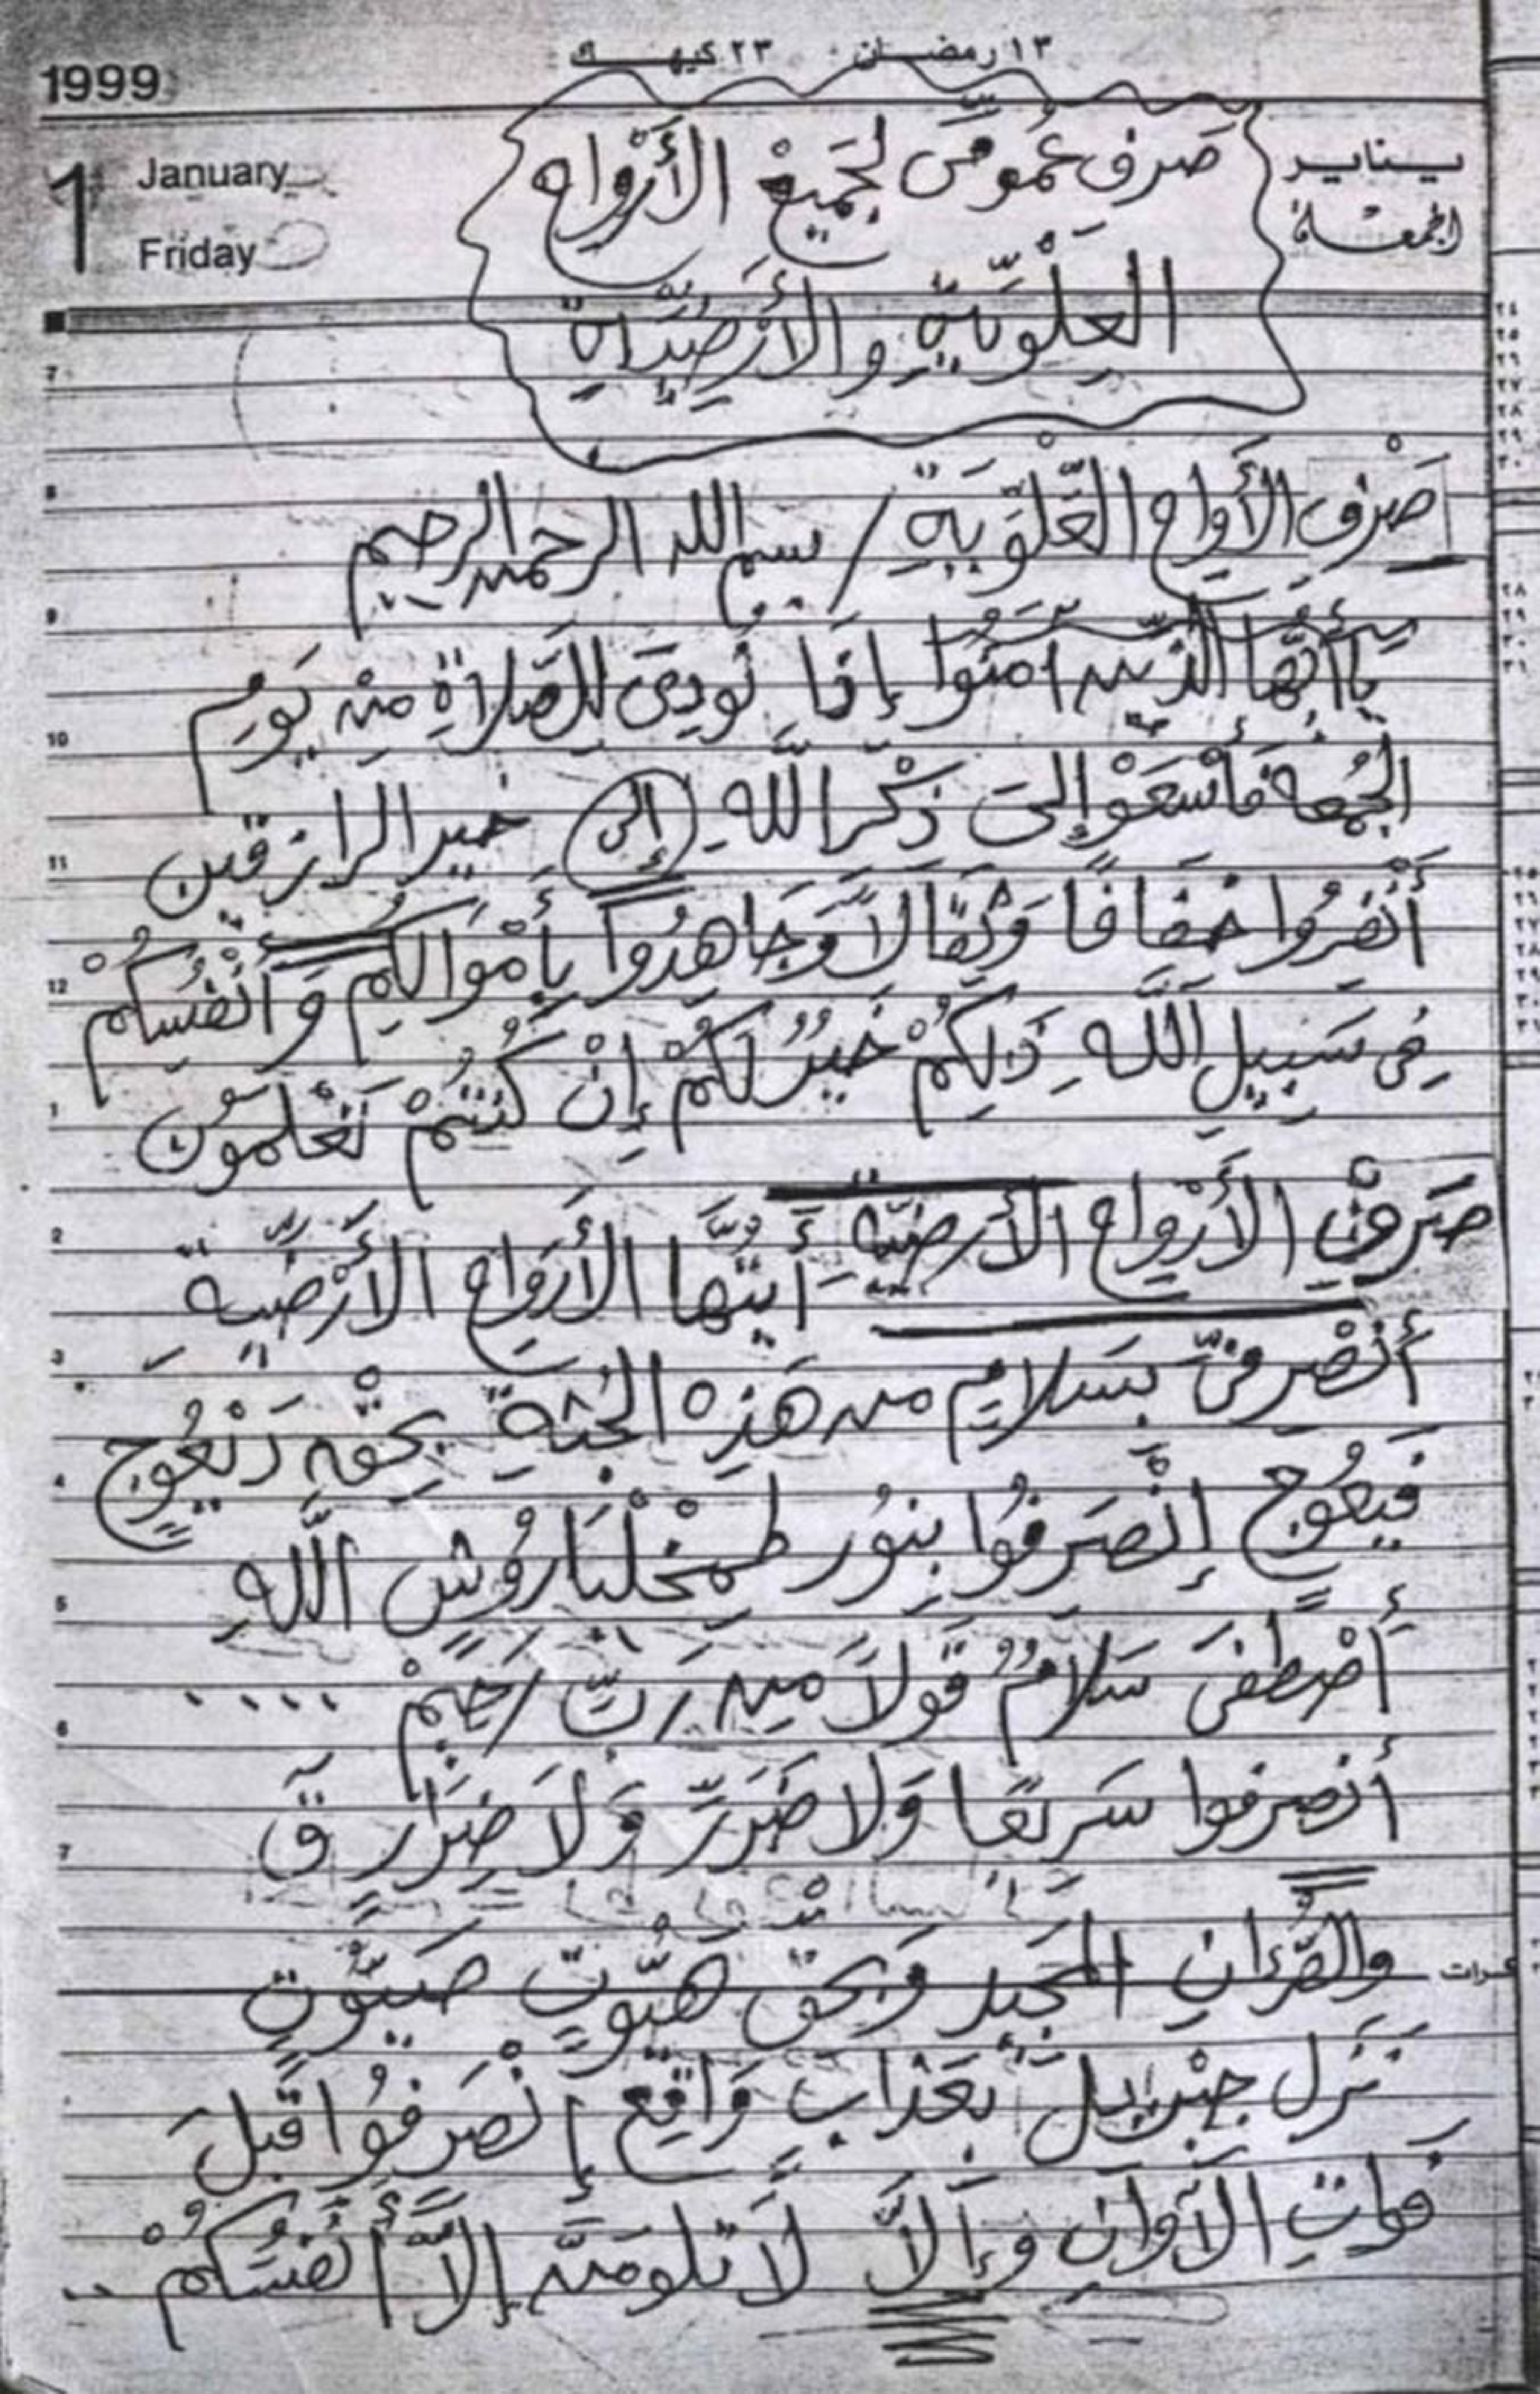 ١٣ رمضان ٢٣ كيهك
1999
1 January يناير
Friday الجمعة
صَرف عُمُومِّى لجَمِيعْ الأَرْواح
العِلْوِيَّةِ والأَرْضِيَّةِ
صَرْف الأَرواح العَّلْوِّيَةِ / بسم الله الرحمن الرحيم
يا أَيُّها الذِّينَ آمَنُوا إِذَا نُودِىَ لِلصَلاَةِ مِنْ يَومِ
الجُمُعة فَأسْعَوْا إلىَ ذِكْرِ اللَّهِ (إلى) خير الرازقين
أَنْفِرُوا خِفَافًا وَثِقَالاً وَجَاهِدُوا بِأَمْوَالِكُم وَأَنْفُسِكُمْ
فِى سَبِيلِ اللَّهِ ذَلِكُمْ خَيْرٌ لَكُمْ إِنْ كُنْتُمْ تَعْلَمُونَ
صَرفْ الأَرْواحِ الأَرضيّة - أَيَتُّهَا الأَرَوَاحِ الأَرْضِّيةِ
أَنْصْرِفىّ بِسَلامٍ من هَذِه الجُثةِ بِحَقْهِ دَنْعُوجٍ
فَيعُوجٍ إِنْصَرِفُوا بِنوُر طمخْلْيَارُوشٍ اللَّهِ
أَصْطفىَ سَلامٌ قَولاً مِن رَبٍّ رَحِيمْ ....
أَنصرفوا سَرِيعًا وَلا ضَرَرَّ وَلاَ ضِرَار قَ
والقُرءانِ المَجيد وَبحقْ هَيُّوتٍ صَيُّوتٍ
نَزَل جبْريل بعَذابٍ وَاقِعٍ إنْصَرِفُوا قَبْلَ
فَواتِ الآوانِ وَإِلاَّ لاَ تلومَنَّ إلاَّ أَنفُسَكُمْ ..
7
8
9
10
11
12
1
2
3
4
5
6
7